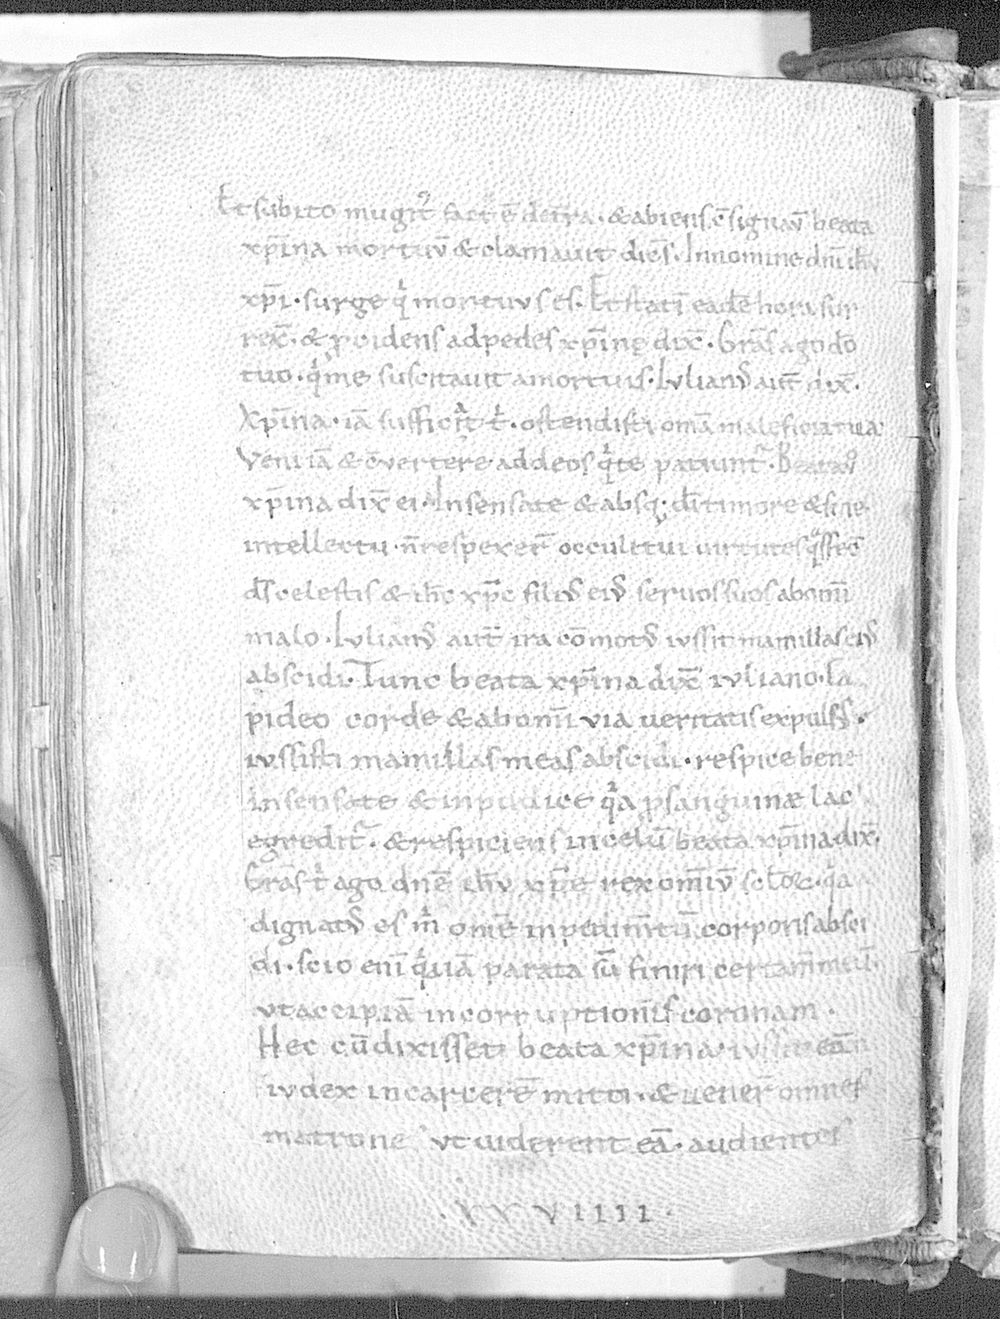 Et subito mugit᷒ fact᷒ ē de tr̄ra · & abiens c̄signav̄ beata
xp̄ina mortuū & clamavit dicēs · In nomine dn̄i ih̄u
xp̄i · surge q' mortuus es · Et statī eadē hora sur
rex̄ · & p̄cidens ad pedes xp̄ine dix̄ · Gr̄as ago dō
tuo · q' me suscitavit a mortuis · Iulian᷒ aut̄ dix̄ ·
Xp̄ina · iā sufficit t' · ostendisti om̄ia maleficia tua
Veni iā & c̄vertere ad deos q' te patiunt᷒ · Beata v̊
xp̄ina dix̄ ei · Insensate & absq; dī timore & sine
intellectu · n̄ respexer̄ occuli tui virtutes
dc̄ celestis & ih̄c xp̄c fili᷒ ei᷒ servos suos ab om̄i
malo · Iulian᷒ aut̄ ira cōmot᷒ iussit mamillas ei᷒
abscidi · Tunc beata xp̄ina dix̄ iuliano · La
pideo corde & ab om̄i via veritatis expulse ·
iussisti mamillas meas abscidi · respice bene
insensate & inpudice q'a p̄ sanguinæ lac
egredit᷒ · & respiciens in celū beata xp̄ina dix̄ ·
Gr̄as t' ago dn̄e ih̄u xp̄e rex om̄iū sc̄loꝝ · q'a
dignat᷒ es m' om̄e inpedim̄tū corporis absci
di · scio enī q'iā parata sū finiri certam̄ meū ·
ut accipiā incorruptionis coronam ·
Hec cū dixisset beata xp̄ina · iussit eā
iudex in carcerē mitti · & vener̄ omnes
matrone ut viderent eā · audientes
· XXVIIII ·